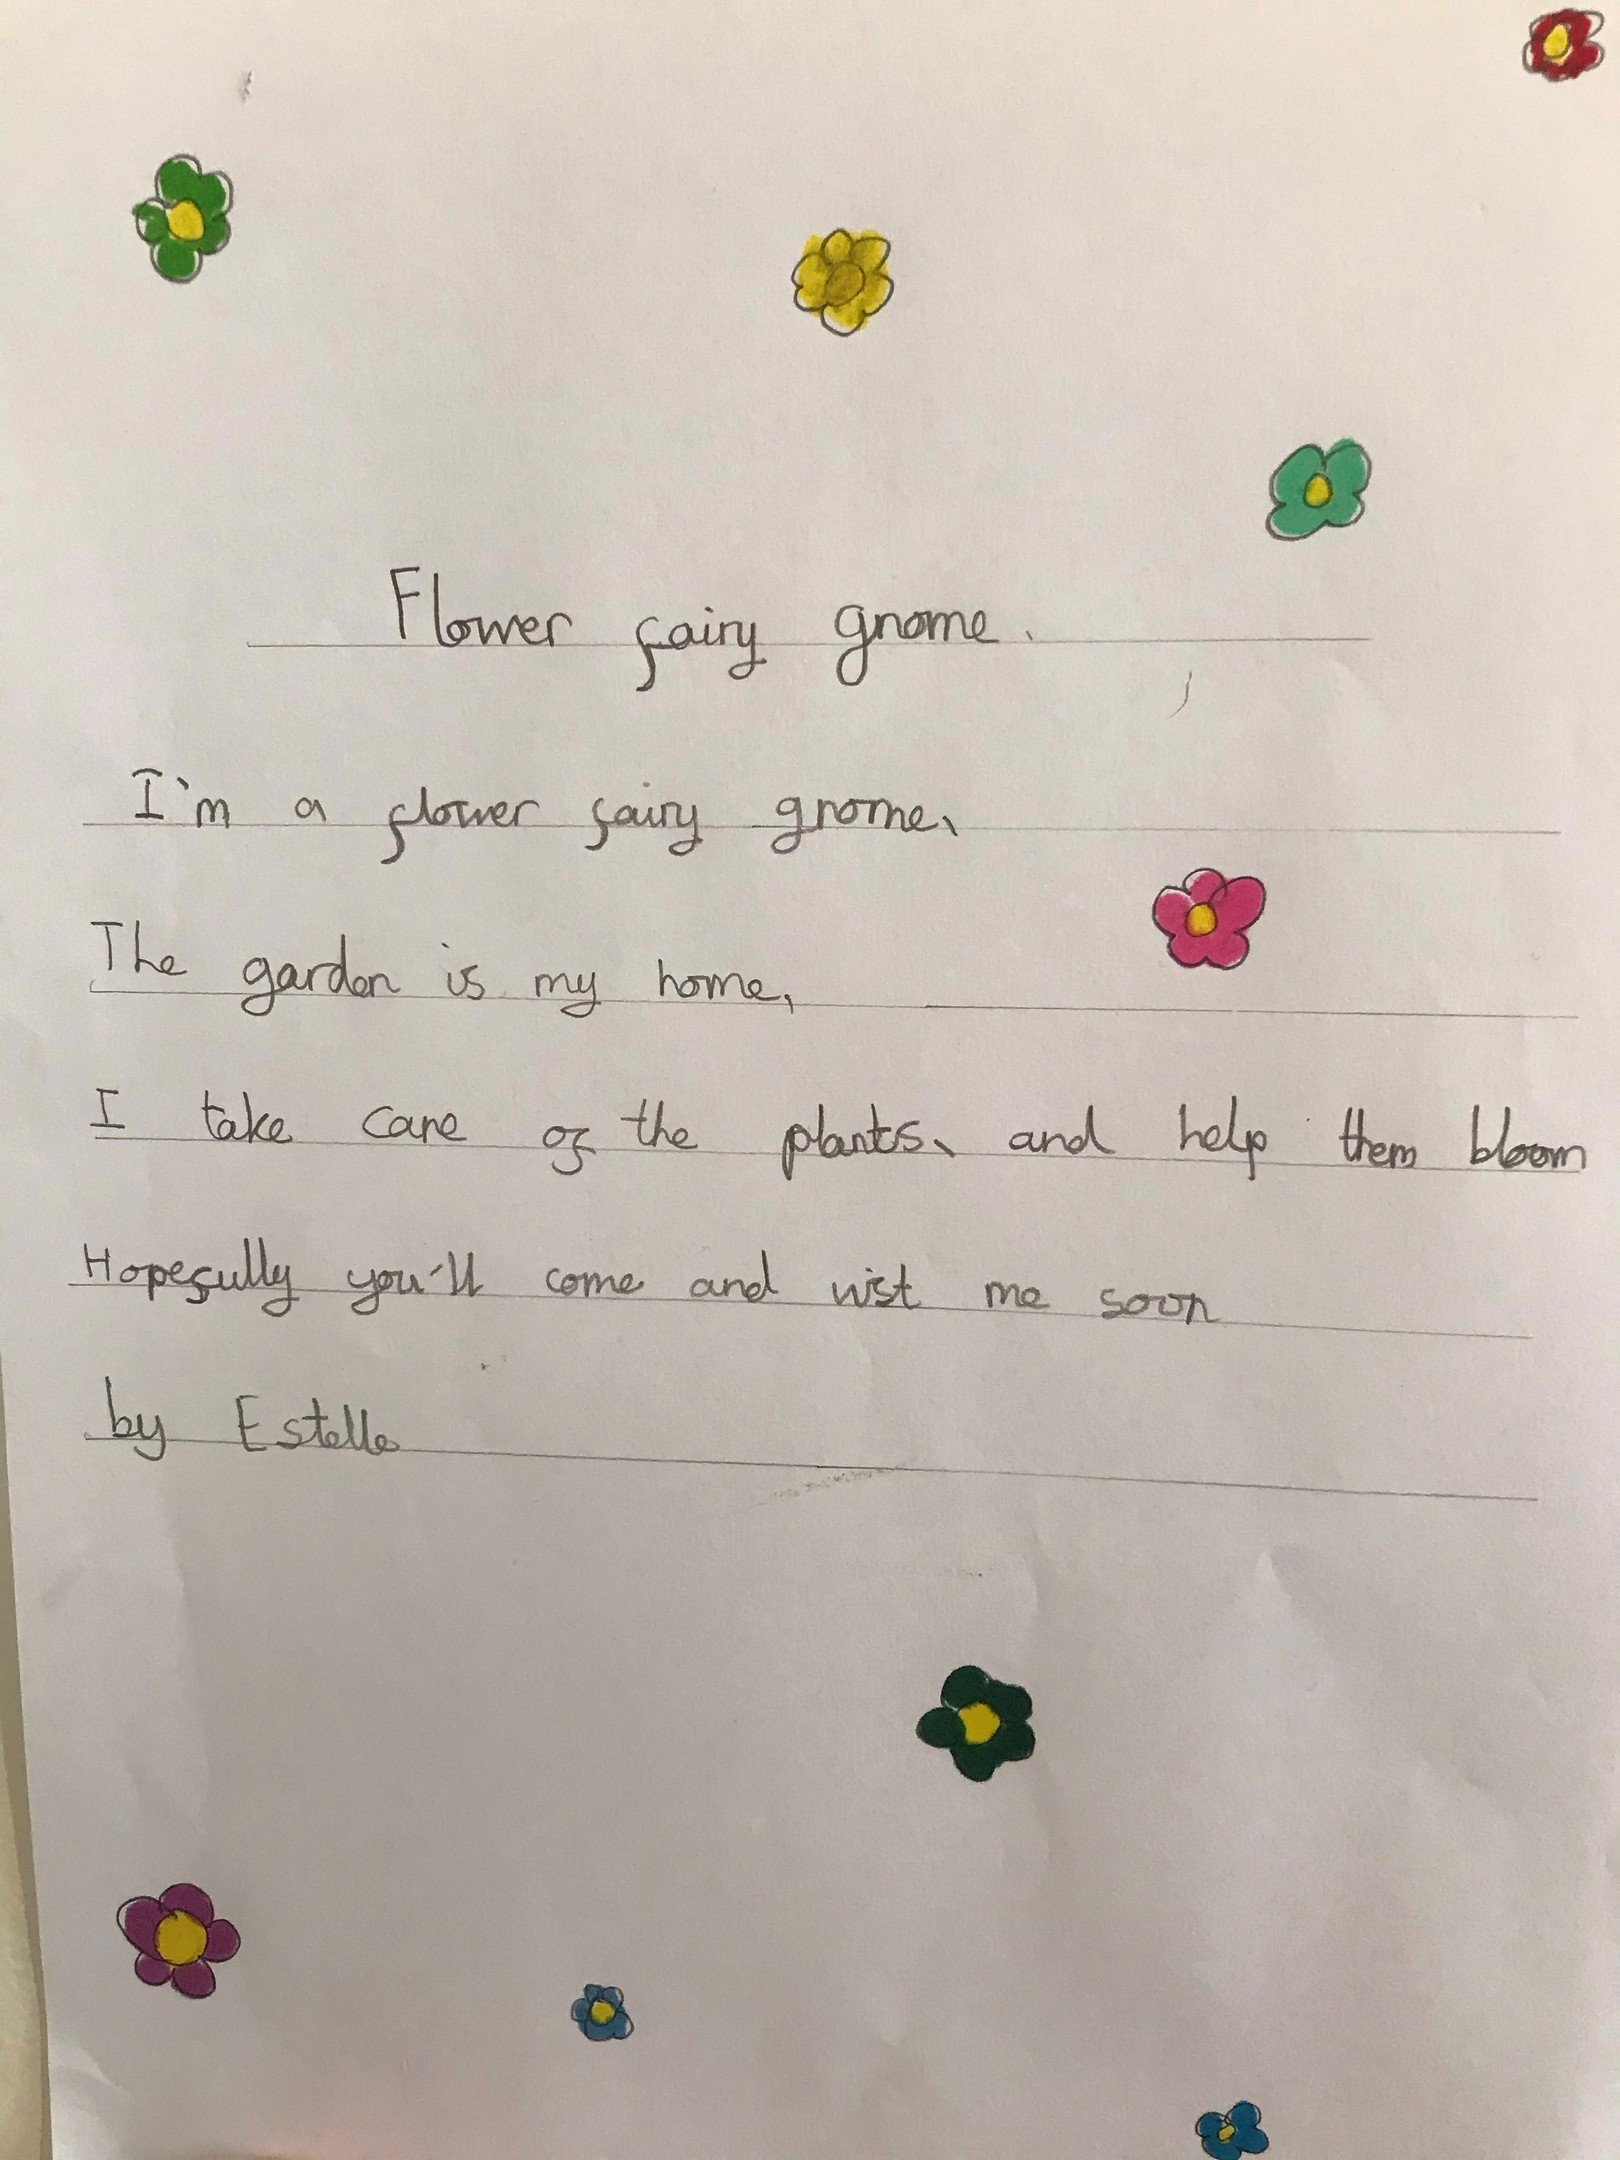 Flower fairy gnome.
I'm a flower fairy gnome,
The garden is my home,
I take care of the plants, and help them bloom
Hopefully you'll come and vist me soon
by Estelle